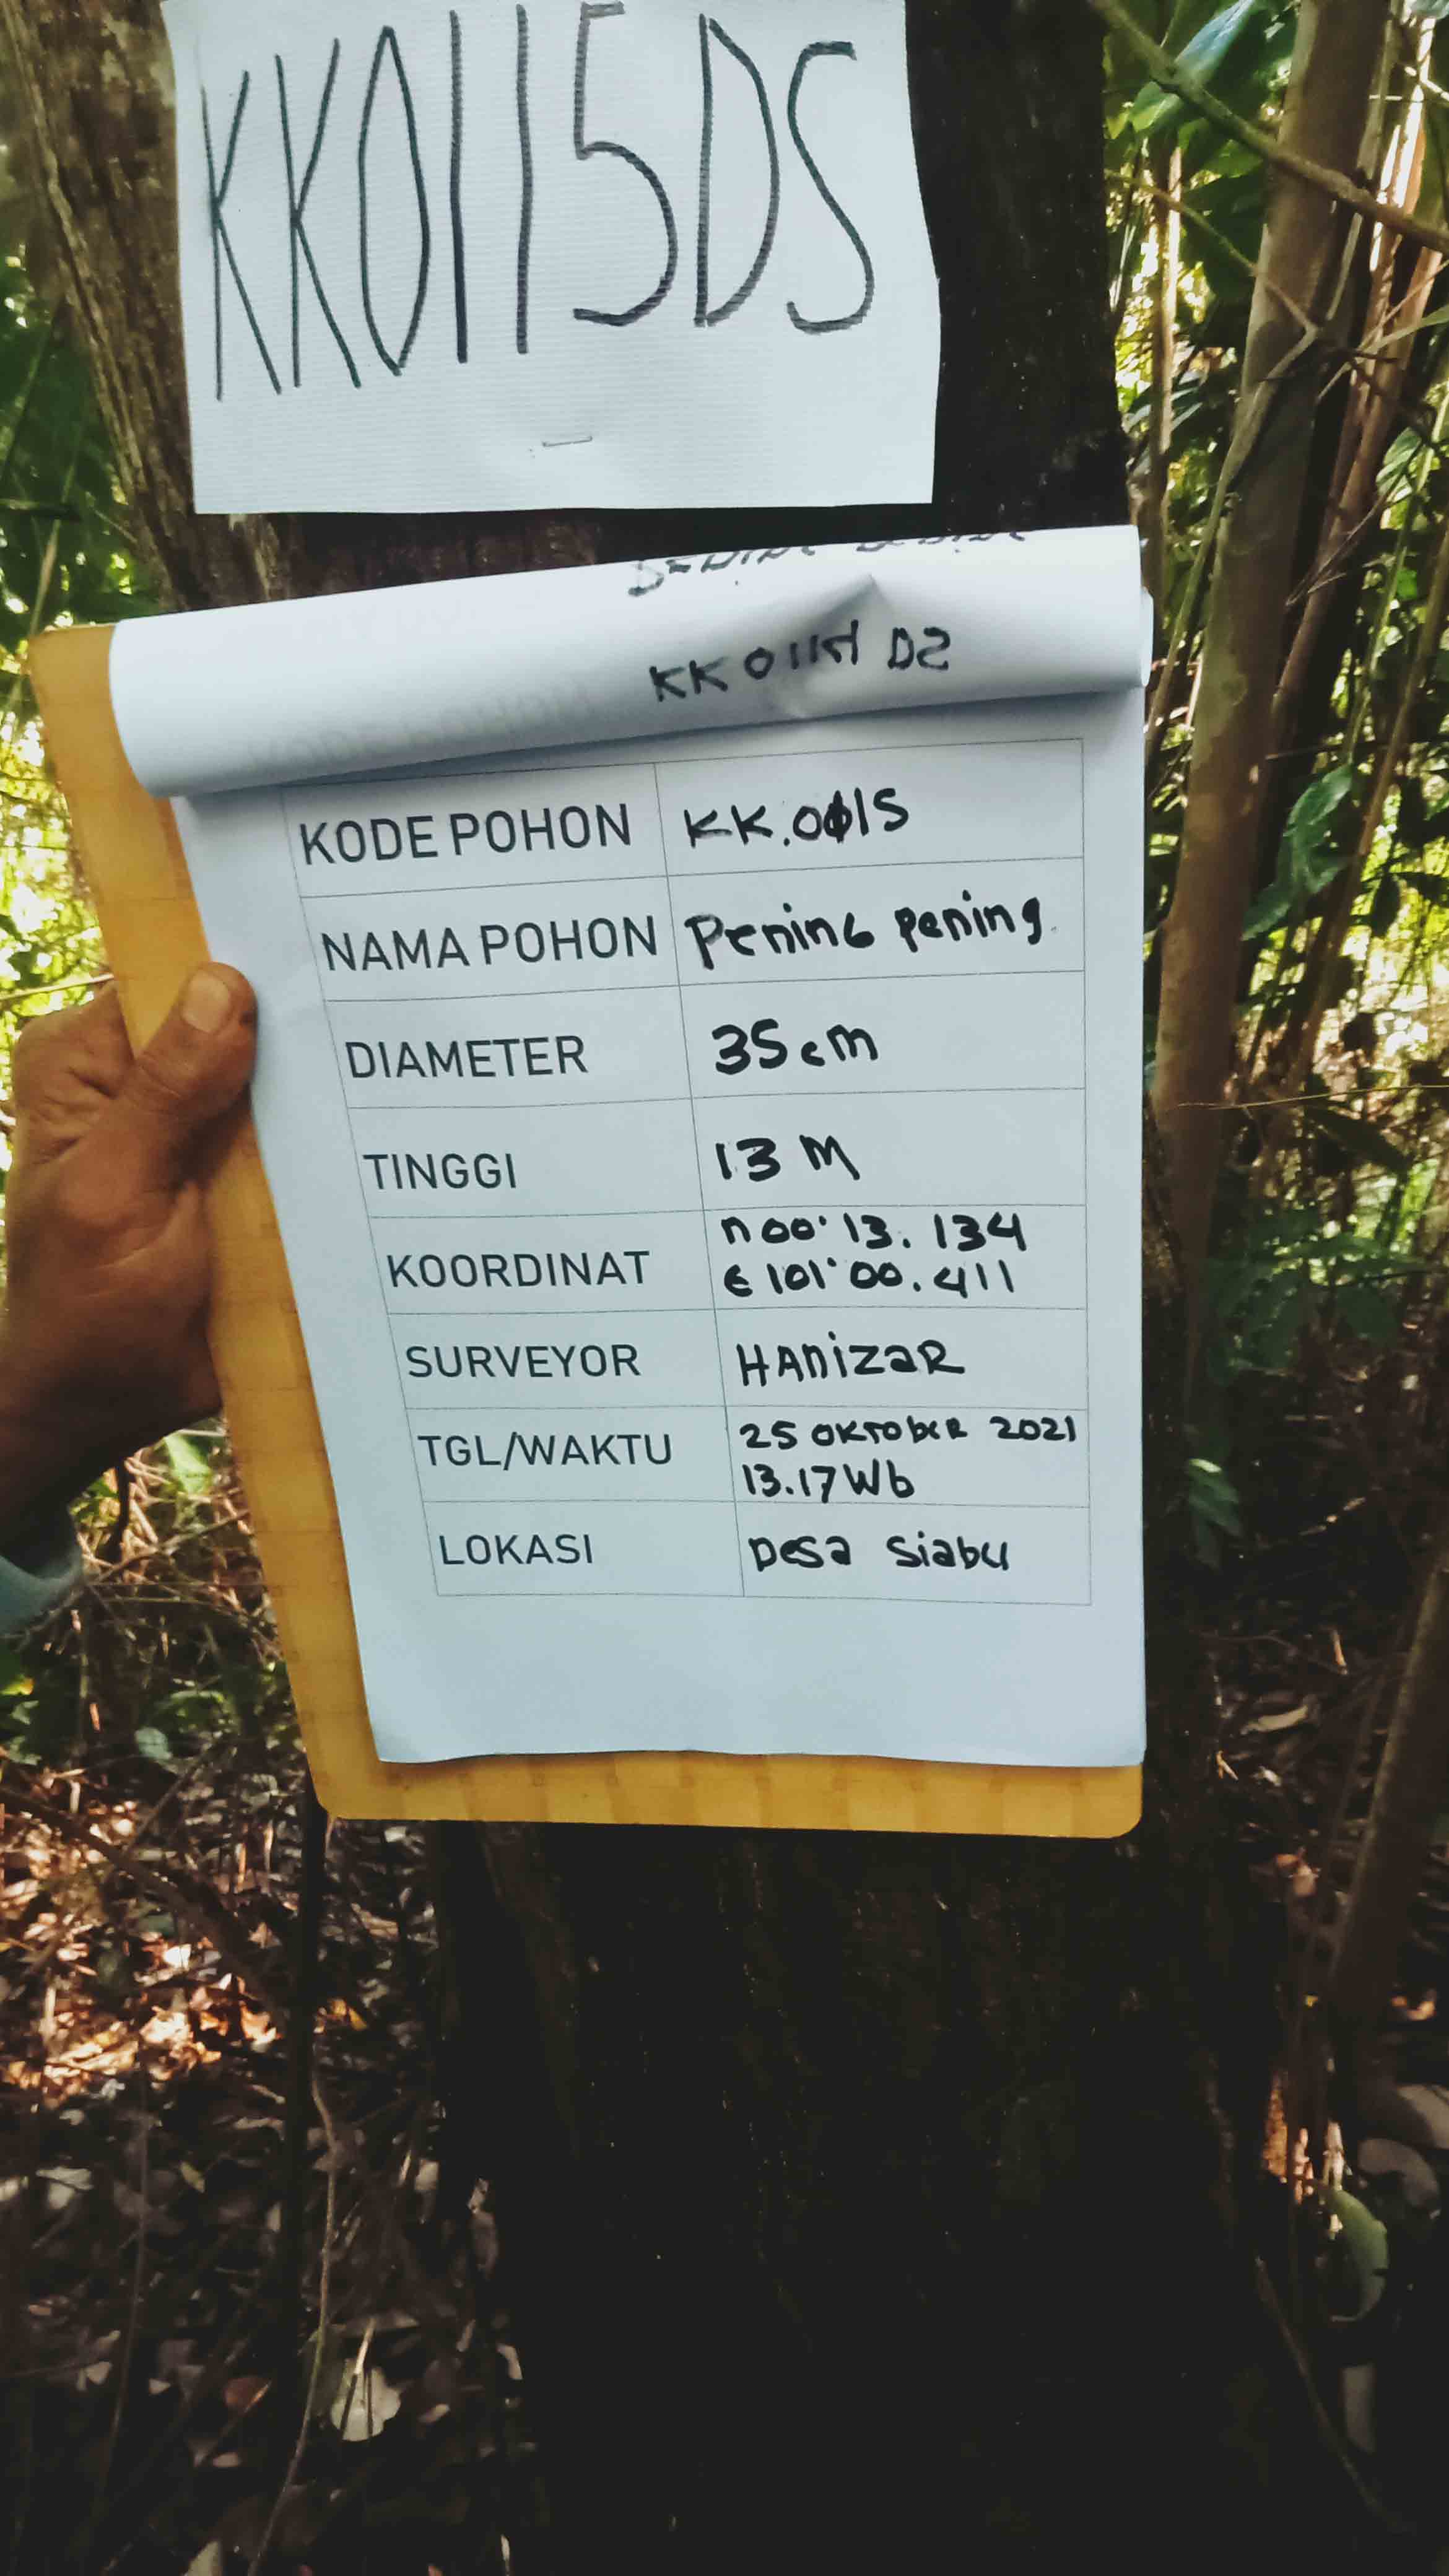 KK0115DS
KK 0114 DS
KODE POHON KK.0115
NAMA POHON Pening pening.
DIAMETER 35cm
TINGGI 13 M
KOORDINAT N 00° 13. 134
E 101° 00. 411
SURVEYOR HANizaR
TGL/WAKTU 25 OKTOBER 2021
13.17 Wb
LOKASI Desa Siabu